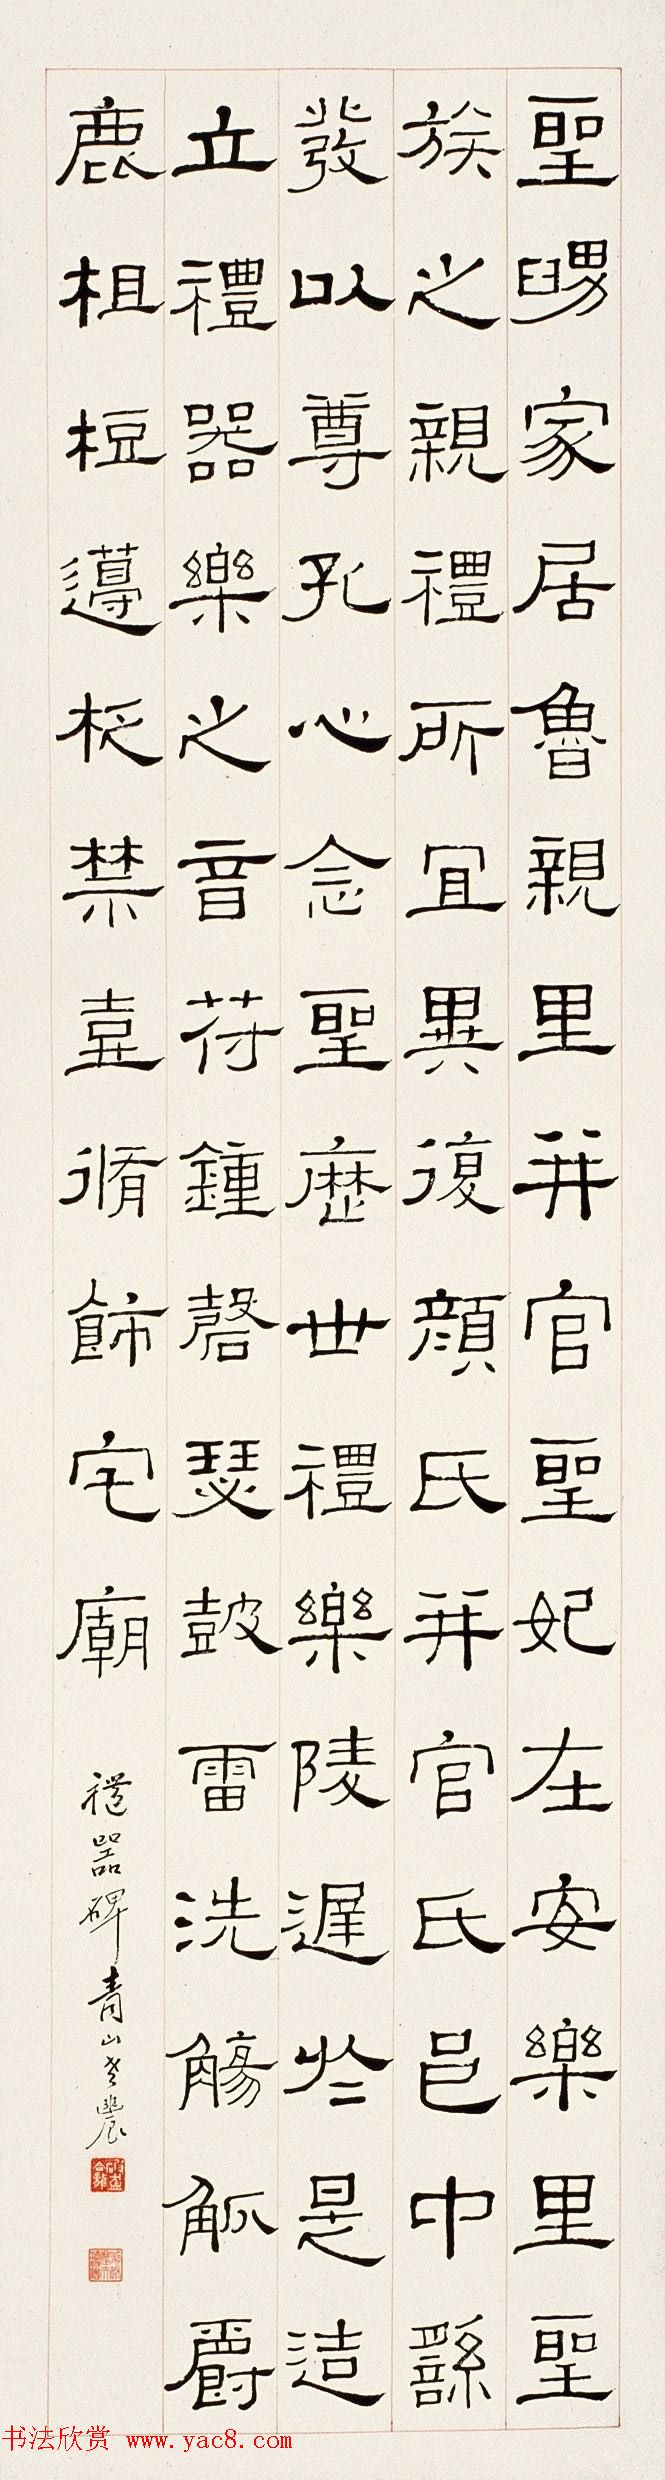 聖舅家居魯親里并官聖妃在安樂里聖
族之親禮所宜異復顏氏并官氏邑中繇
發以尊孔心念聖歷世禮樂陵遲於是造
立禮器樂之音符鍾磬瑟鼓雷洗觴觚爵
鹿柤梪籩柉禁壺脩飾宅廟
禮器碑青山老農
书法欣赏 www.yac8.com